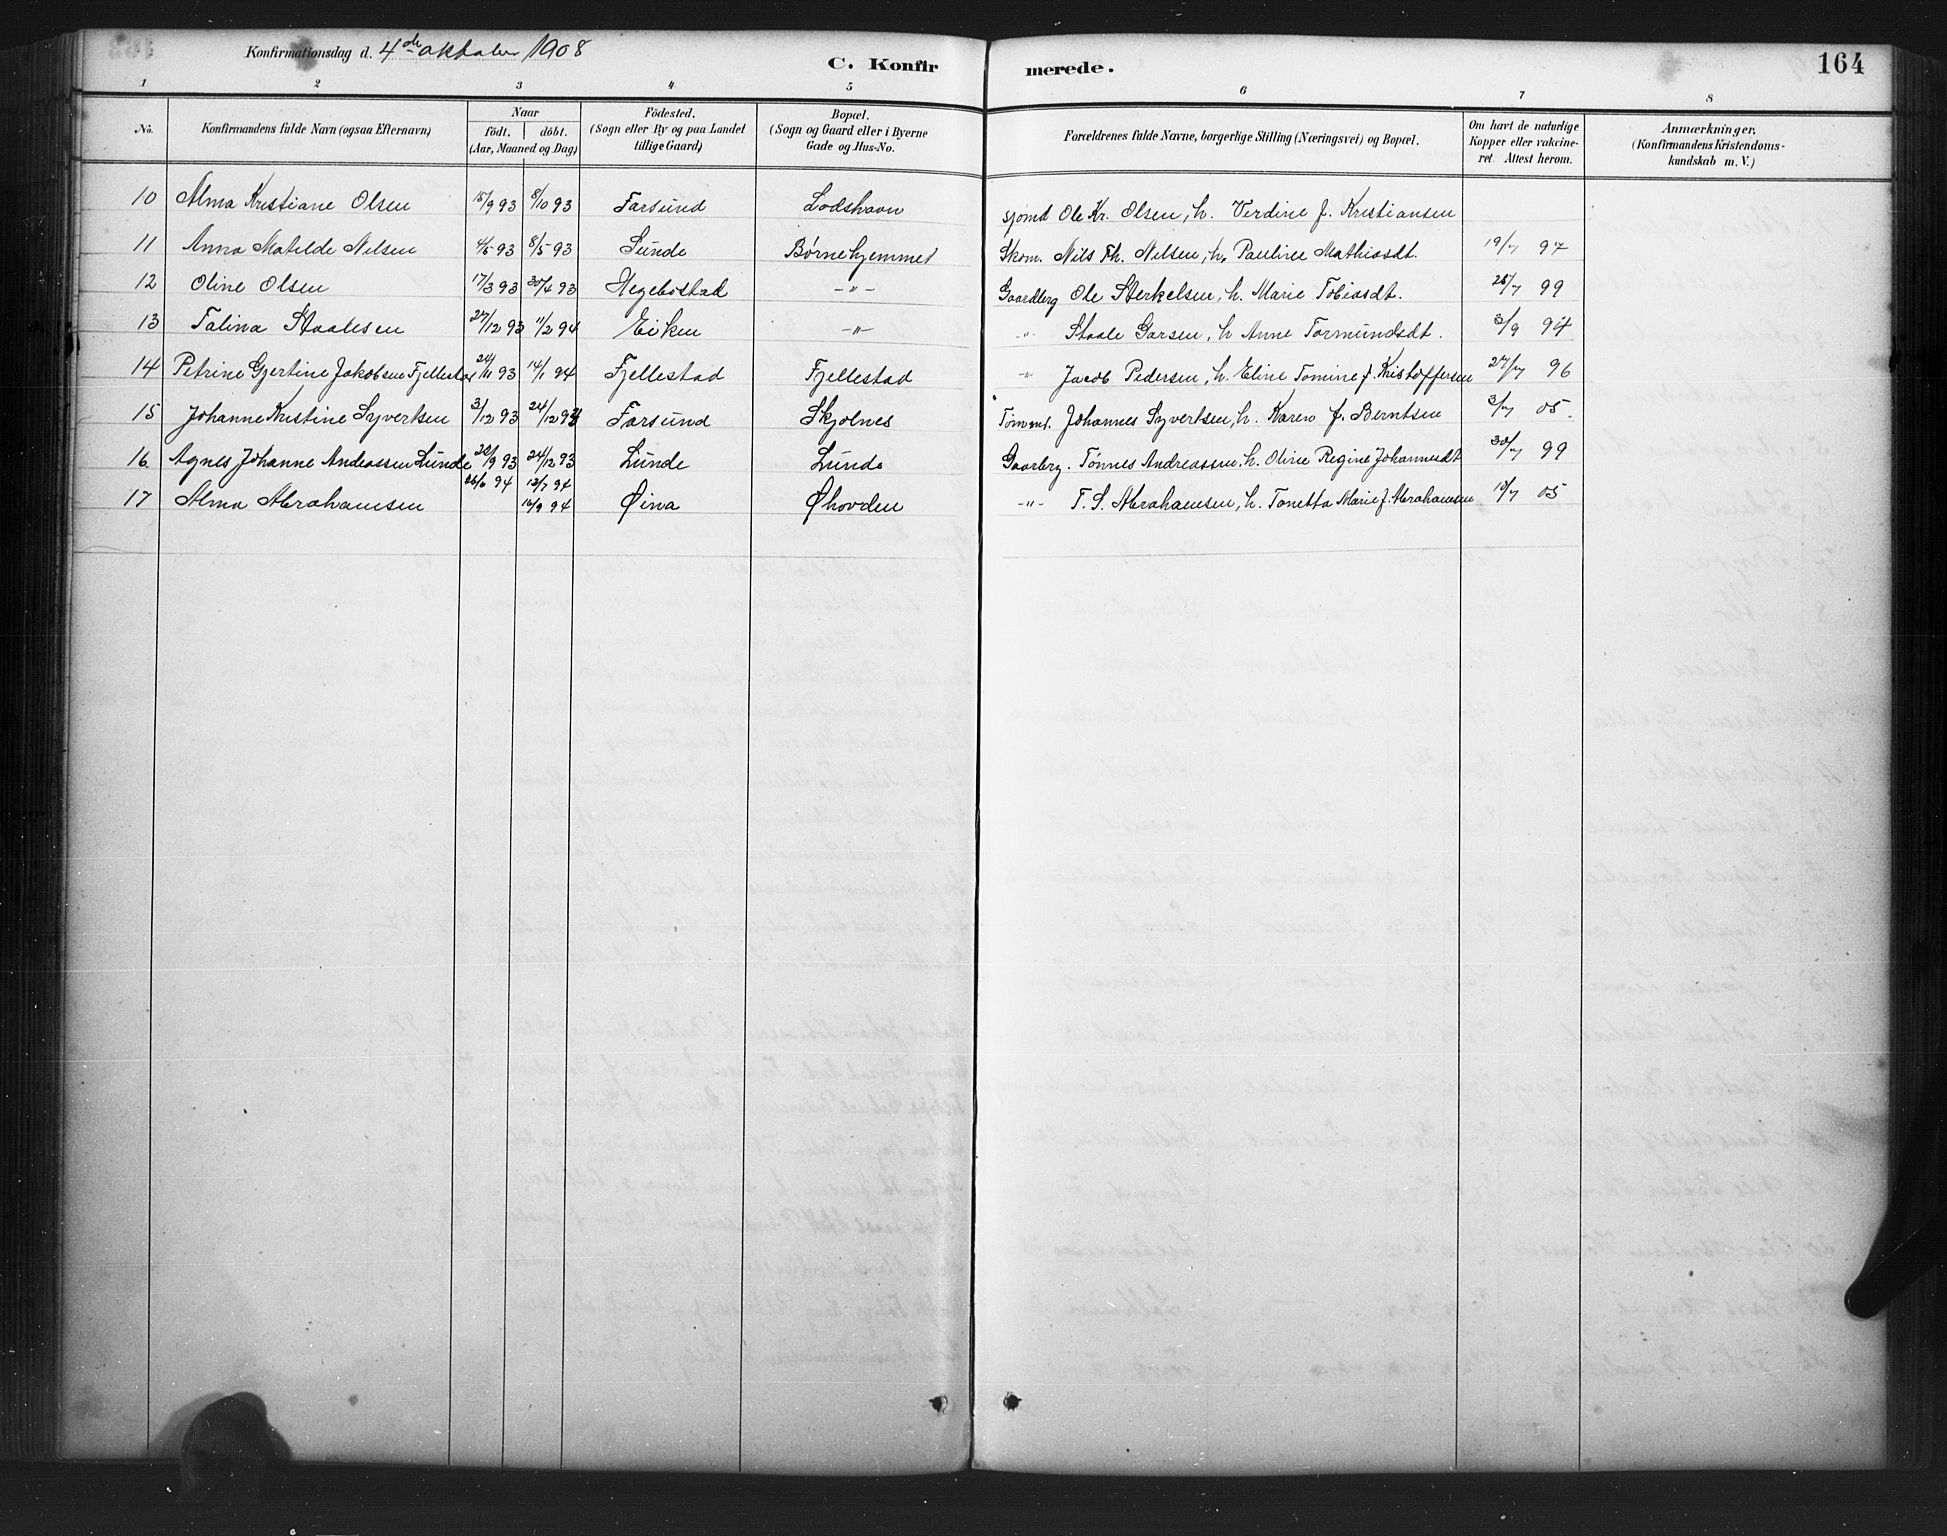 Konfirmationsdag d. 4de oktober 1908
C. Konfirmerede.
164
1 2 3 4 5 6 7 8
No.
Konfirmandens fulde Navn (ogsaa Efternavn)
Naar
födt. döbt.
(Aar, Maaned og Dag)
Födested.
(Sogn eller By og paa Landet
tillige Gaard)
Bopæl.
(Sogn og Gaard eller i Byerne
Gade og Hus-No.
Forældrenes fulde Navne, borgerlige Stilling (Næringsvei) og Bopæl.
Om havt de naturlige
Kopper eller vakcine-
ret. Attest herom.
Anmærkninger.
(Konfirmandens Kristendoms-
kundskab m. V.)
10 Alma Kristiane Olsen 15/9 93 8/10 93 Farsund Lodshavn sjømd Ole Kr. Olsen, h. Verdine f. Kristiansen
11 Anna Matilde Nilsen 4/5 93 8/5 93 Sunde Børnehjemmet Skom. Nils Th. Nilsen, h. Pauline Mathiasdt. 19/7 97
12 Oline Olsen 17/3 93 30/4 93 Hegebøstad -"- Gaardbrg Ole Sterkelsen, h. Marie Tobiasdt. 28/7 99
13 Talina Staalesen 27/12 93 11/2 94 Eiken -"- -"- Staale Garsen, h Anne Tormundsdt. 3/9 94
14 Petrine Gjertine Jakobsen Fjellestad 24/11 93 14/1 94 Fjellestad Fjellestad -"- Jacob Pedersen, h. Eline Tomine f. Kristoffersen 27/7 96
15 Johanne Kristine Syvertsen 3/12 93 24/12 93 Farsund Skjolnes Tømmd. Johannes Syvertsen, h. Karen f. Berntsen 3/7 05.
16 Agnes Johanne Andreassen Lunde 22/9 93 24/12 93 Lunde Lunde Gaarbrg. Tønnes Andreassen, h. Oline Regine Johannesdt 30/7 99
26/6 94 12/7 94
17 Alma Abrahamsen 16/9 94 Øina Øhovden -"- T. S. Abrahamsen, h. Tonetta Marie f. Abrahamsen 10/7 05